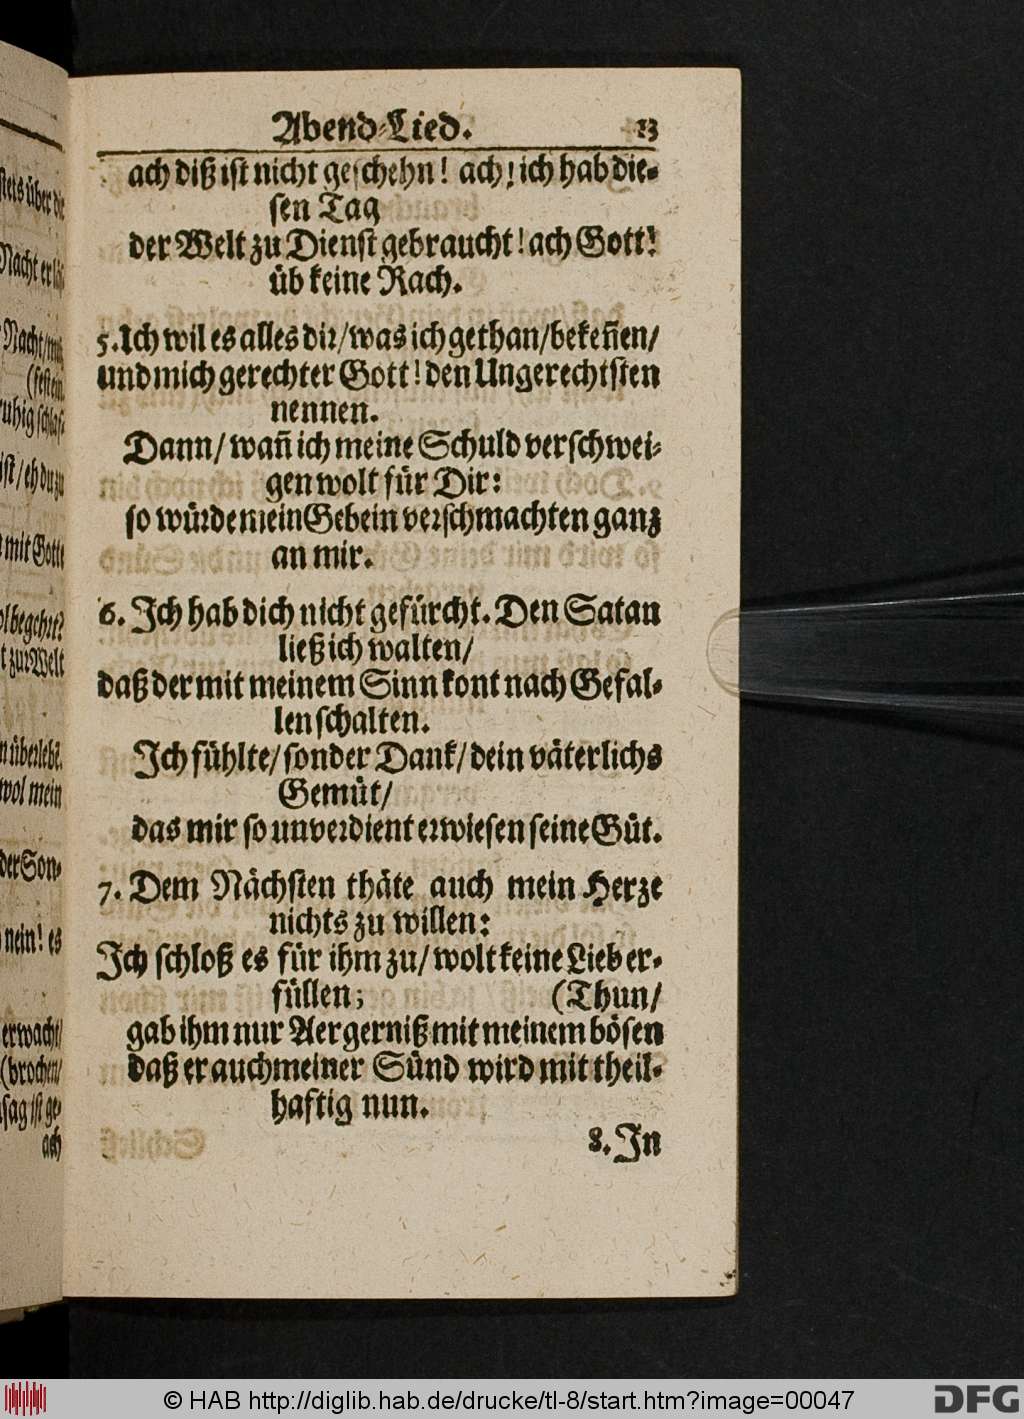 Abend-Lied. 13
ach diß ist nicht geschehn! ach! ich hab die-
sen Tag
der Welt zu Dienst gebraucht! ach Gott!
üb keine Rach.
5. Ich wil es alles dir/ was ich gethan/ bekeñen/
und mich gerechter Gott! den Ungerechtsten
nennen.
Dann/ wañ ich meine Schuld verschwei-
gen wolt für Dir:
so würde mein Gebein verschmachten ganz
an mir.
6. Ich hab dich nicht gefürcht. Den Satan
ließ ich walten/
daß der mit meinem Sinn kont nach Gefal-
len schalten.
Ich fühlte/ sonder Dank/ dein väterlichs
Gemüt/
das mir so unverdient erwiesen seine Güt.
7. Dem Nächsten thäte auch mein Herze
nichts zu willen:
Ich schloß es für ihm zu/ wolt keine Lieb er-
füllen; (Thun/
gab ihm nur Aergerniß mit meinem bösen
daß er auch meiner Sünd wird mit theil-
haftig nun.
8. In
stets über die
Nacht er
Nacht/
ruhig schlaf
ist/ eh du zu
mit Gott
begehrt?
zur Welt
überlebt.
wol mein
der Son-
nein! es
erwacht/
(brochen/
sag ist ge-
ach
© HAB http://diglib.hab.de/drucke/tl-8/start.htm?image=00047
DFG